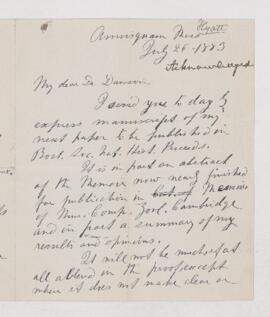 Hyatt
Annisquam Mass
July 26 - 1883
Acknowledged
My dear Dr Dawson
I send you to day by
express manuscript of my
next paper to be published in
Bost. Soc. Nat. Hist. Proceeds.
It is in part an abstract
of the Memoir now nearly finished
for publication in Memoirs
of Mus. Comp. Zool. Cambridge
and in part a summary of my
results and opinions.
It will not be much if at
all altered in the proof except
when it does not make clear or